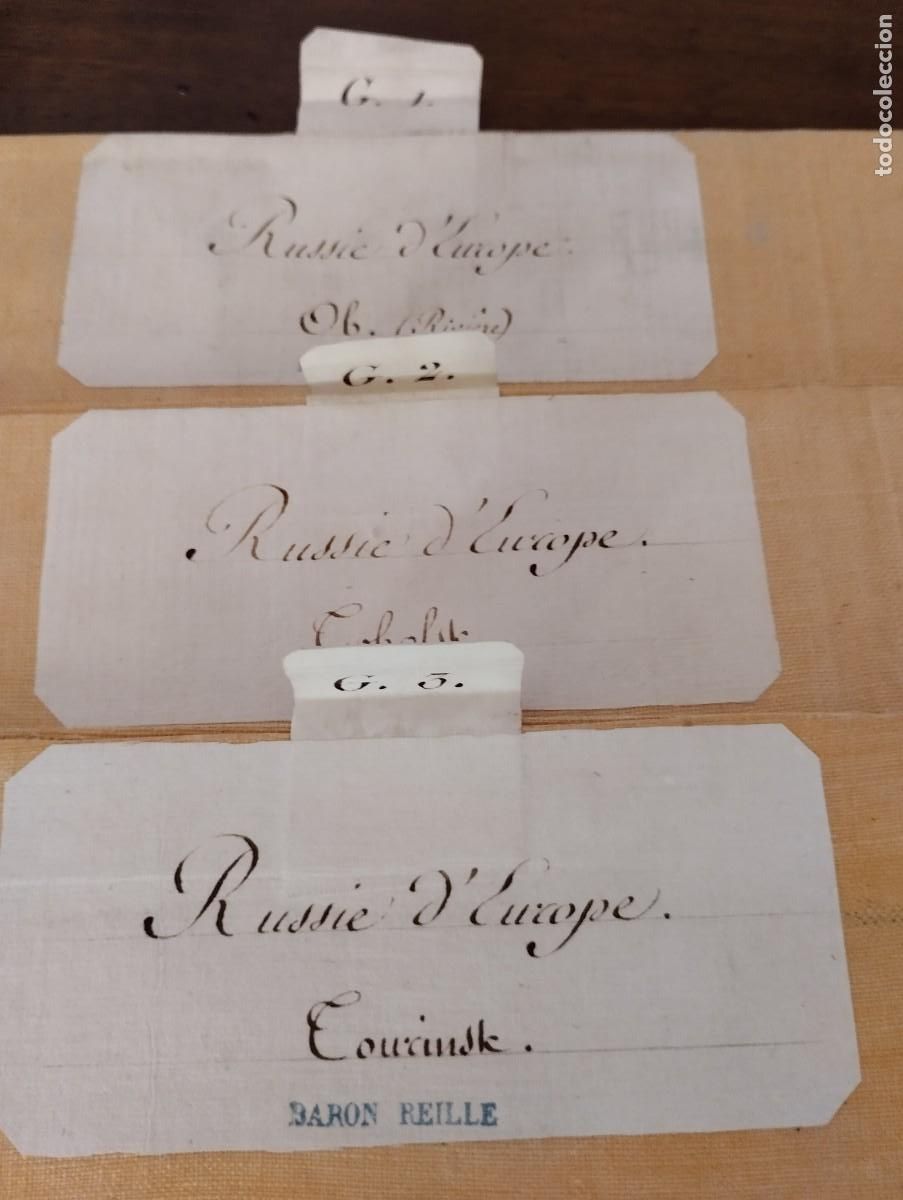 G. 1.
Russie d'Europe.
Ob. (Rivière)
G. 2.
Russie d'Europe.
Tobolsk
G. 3.
Russie d'Europe.
Tourinsk.
BARON REILLE
todocoleccion